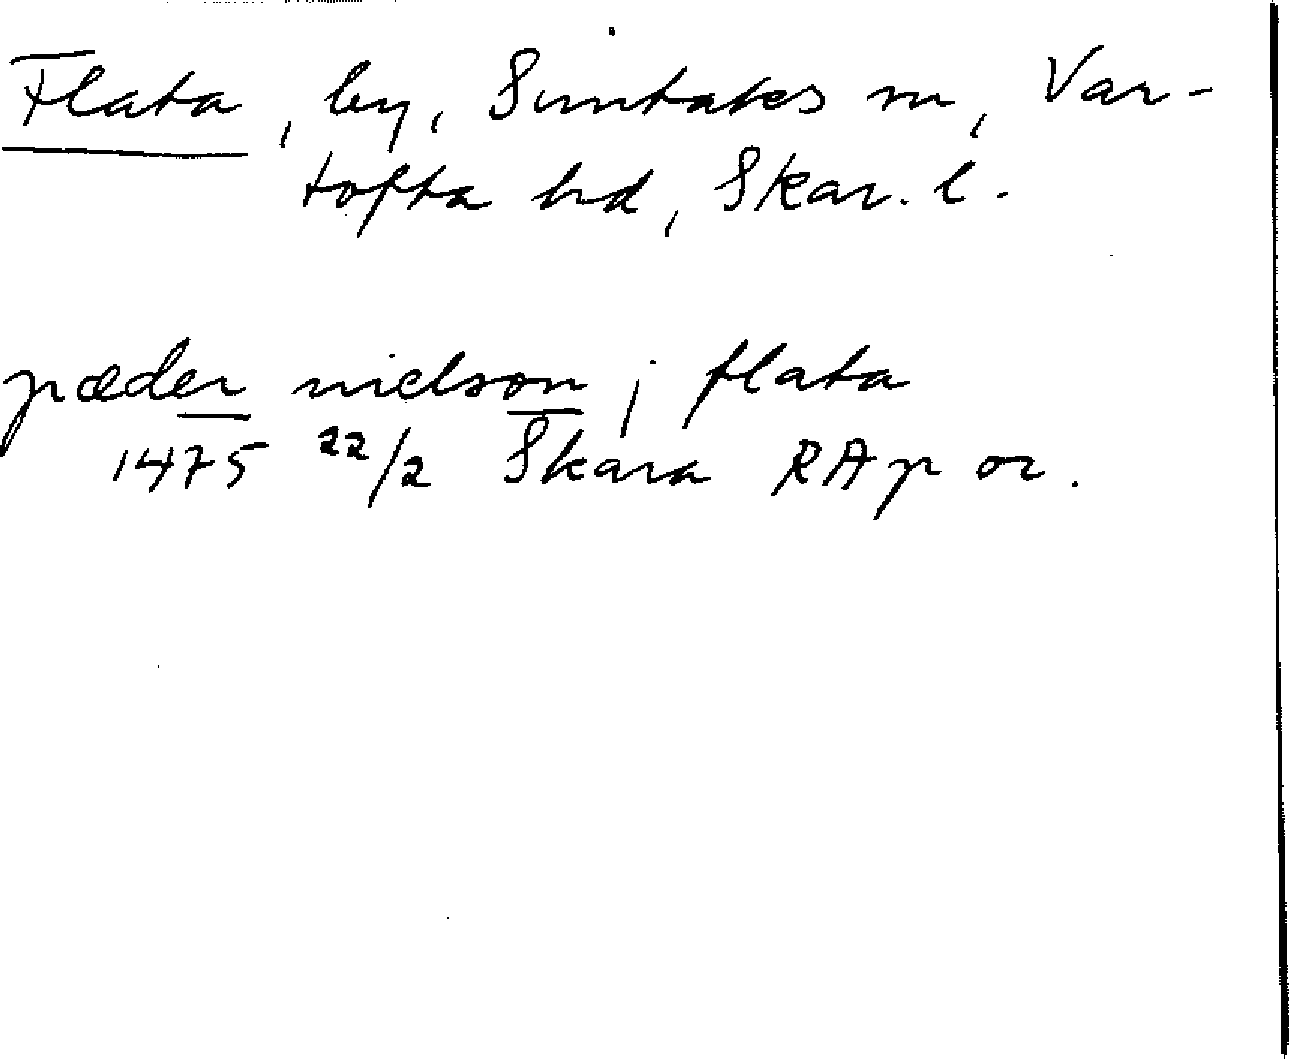 Flata, by, Suntaks sn, Var-
tofta hd, Skar. l.
pæder nielson j flata
1475 22/2 Skara RAp or.